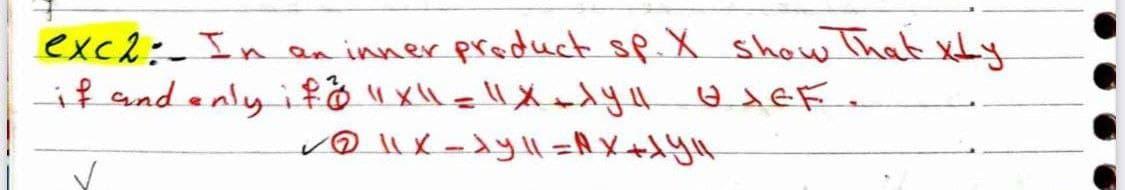 exc2:- In an inner product sp. X show That x⊥y
if and only if ① ? ||x|| = ||x+λy|| ∀ λ∈F.
✓② ||x-λy|| = ||x+λy||
✓